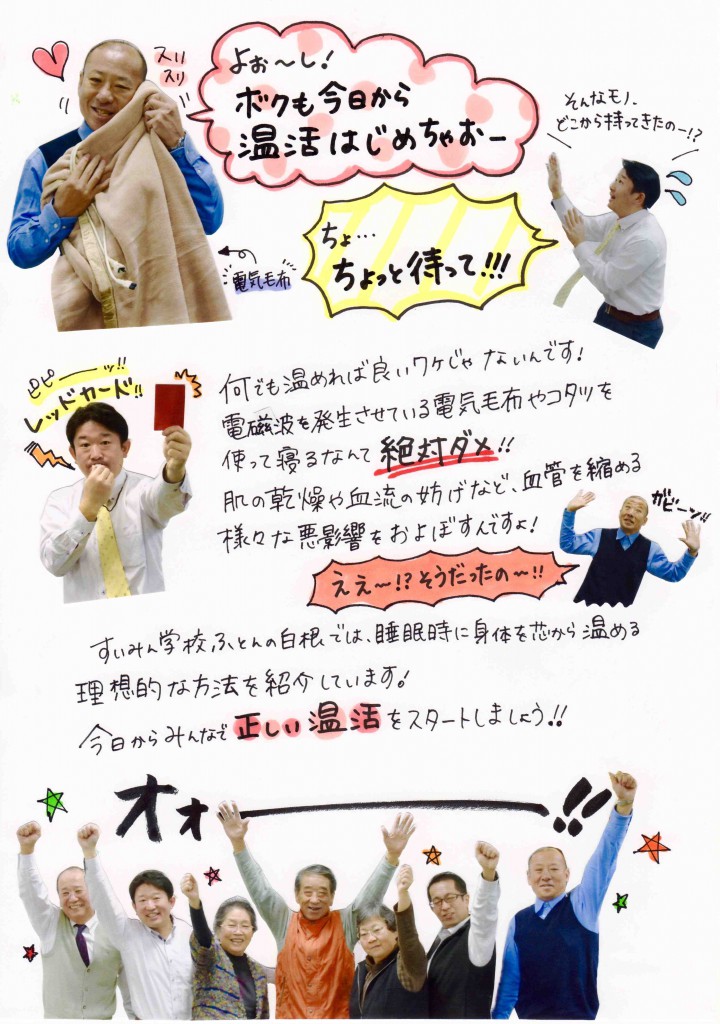 スリスリ
よぉ〜し!
ボクも今日から
温活はじめちゃおー
そんなモノ、
どこから持ってきたのー!?
ちょ…
ちょっと待って!!!
電気毛布
ピピーーッ!!
レッドカード!!
何でも温めれば良いワケじゃないんです!
電磁波を発生させている電気毛布やコタツを
使って寝るなんて絶対ダメ!!
肌の乾燥や血流の妨げなど、血管を縮める
様々な悪影響をおよぼすんですよ!
ガビーン!!
ええ〜!?そうだったの〜!!
すいみん学校ふとんの白根では、睡眠時に身体を芯から温める
理想的な方法を紹介しています!
今日からみんなで正しい温活をスタートしましょう!!
オォーーー!!